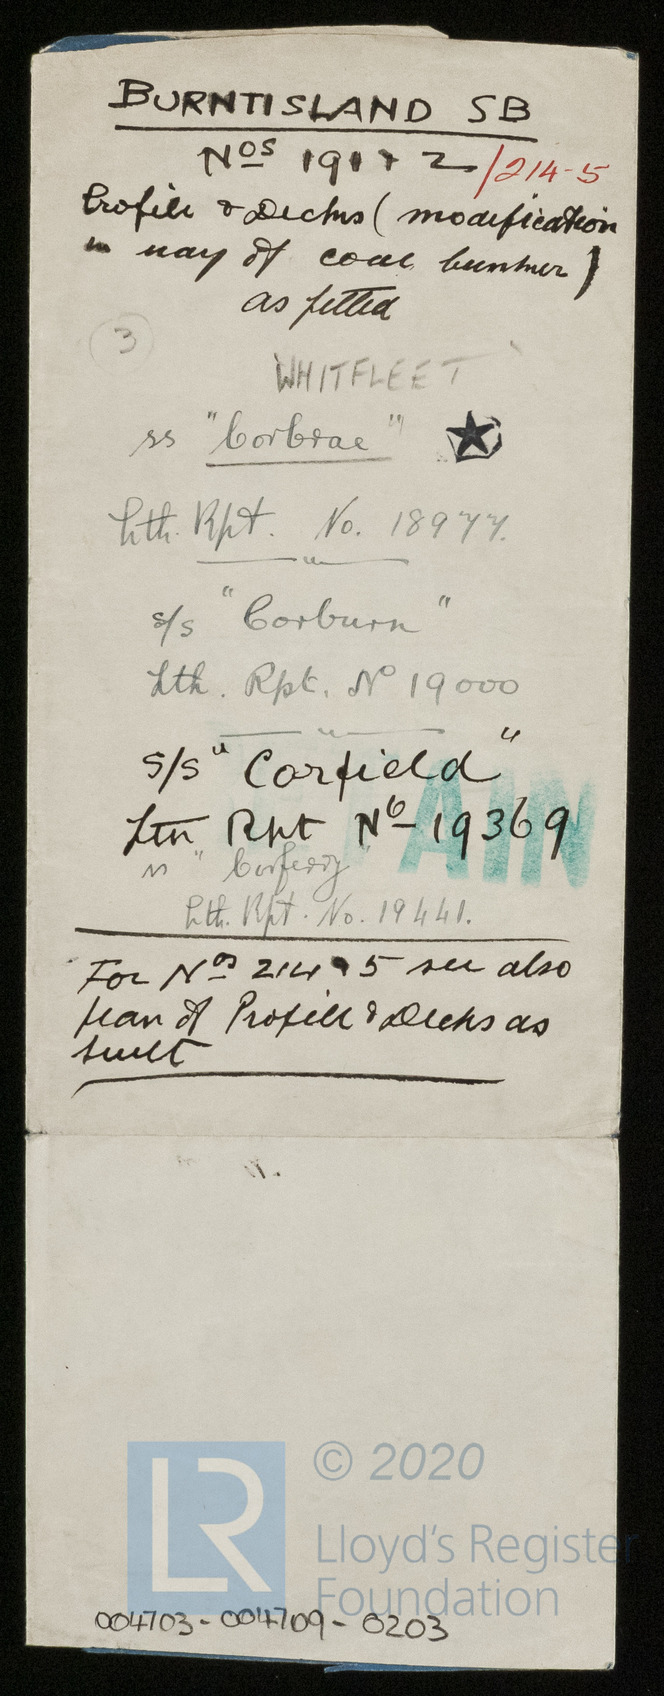 BURNTISLAND SB
Nos 191 & 2 /214-5
Profile & Decks (modification
in way of coal bunker)
as fitted
3
WHITFLEET
ss "Corbrae"
Lth. Rpt. No. 18977.
s/s "Corburn"
Lth. Rpt. No 19000
s/s "Corfield"
Lth Rpt No 19369
AIN
"Corferry"
Lth. Rpt. No. 19441.
For Nos 214 & 5 see also
plan of Profile & Decks as
built
LR
© 2020
Lloyd's Register
Foundation
004703-004709-0203